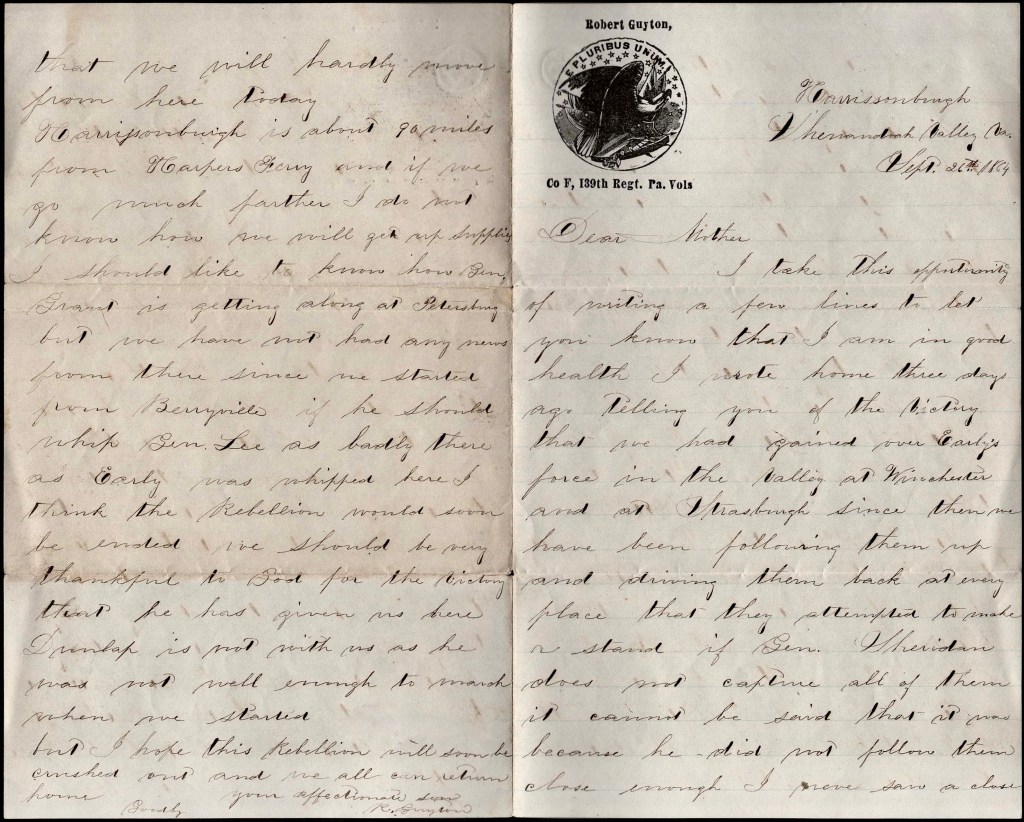 Robert Guyton,
E PLURIBUS UNUM
Co F, 139th Regt. Pa. Vols
Harrissonburgh
Shenandoah Valley Va.
Sept. 26th 1864
Dear Mother
I take this opportunity
of writing a few lines to let
you know that I am in good
health I wrote home three days
ago telling you of the Victory
that we had gained over Early's
force in the Valley at Winchester
and at Strasburgh since then we
have been following them up
and driving them back at every
place that they attempted to make
a stand if Gen. Sheridan
does not capture all of them
it cannot be said that it was
because he did not follow them
close enough I never saw a close
that we will hardly move
from here today
Harrissonburgh is about 90 miles
from Harpers Ferry and if we
go much farther I do not
know how we will get up supplies
I should like to know how Gen.
Grant is getting along at Petersburg
but we have not had any news
from there since we started
from Berryville if he should
whip Gen. Lee as badly there
as Early was whipped here I
think the Rebellion would soon
be ended we should be very
thankful to God for the Victory
that he has given us here
Dunlap is not with us as he
was not well enough to march
when we started
but I hope this Rebellion will soon be
crushed out and we all can return
home your affectionate son
Goodby R. Guyton